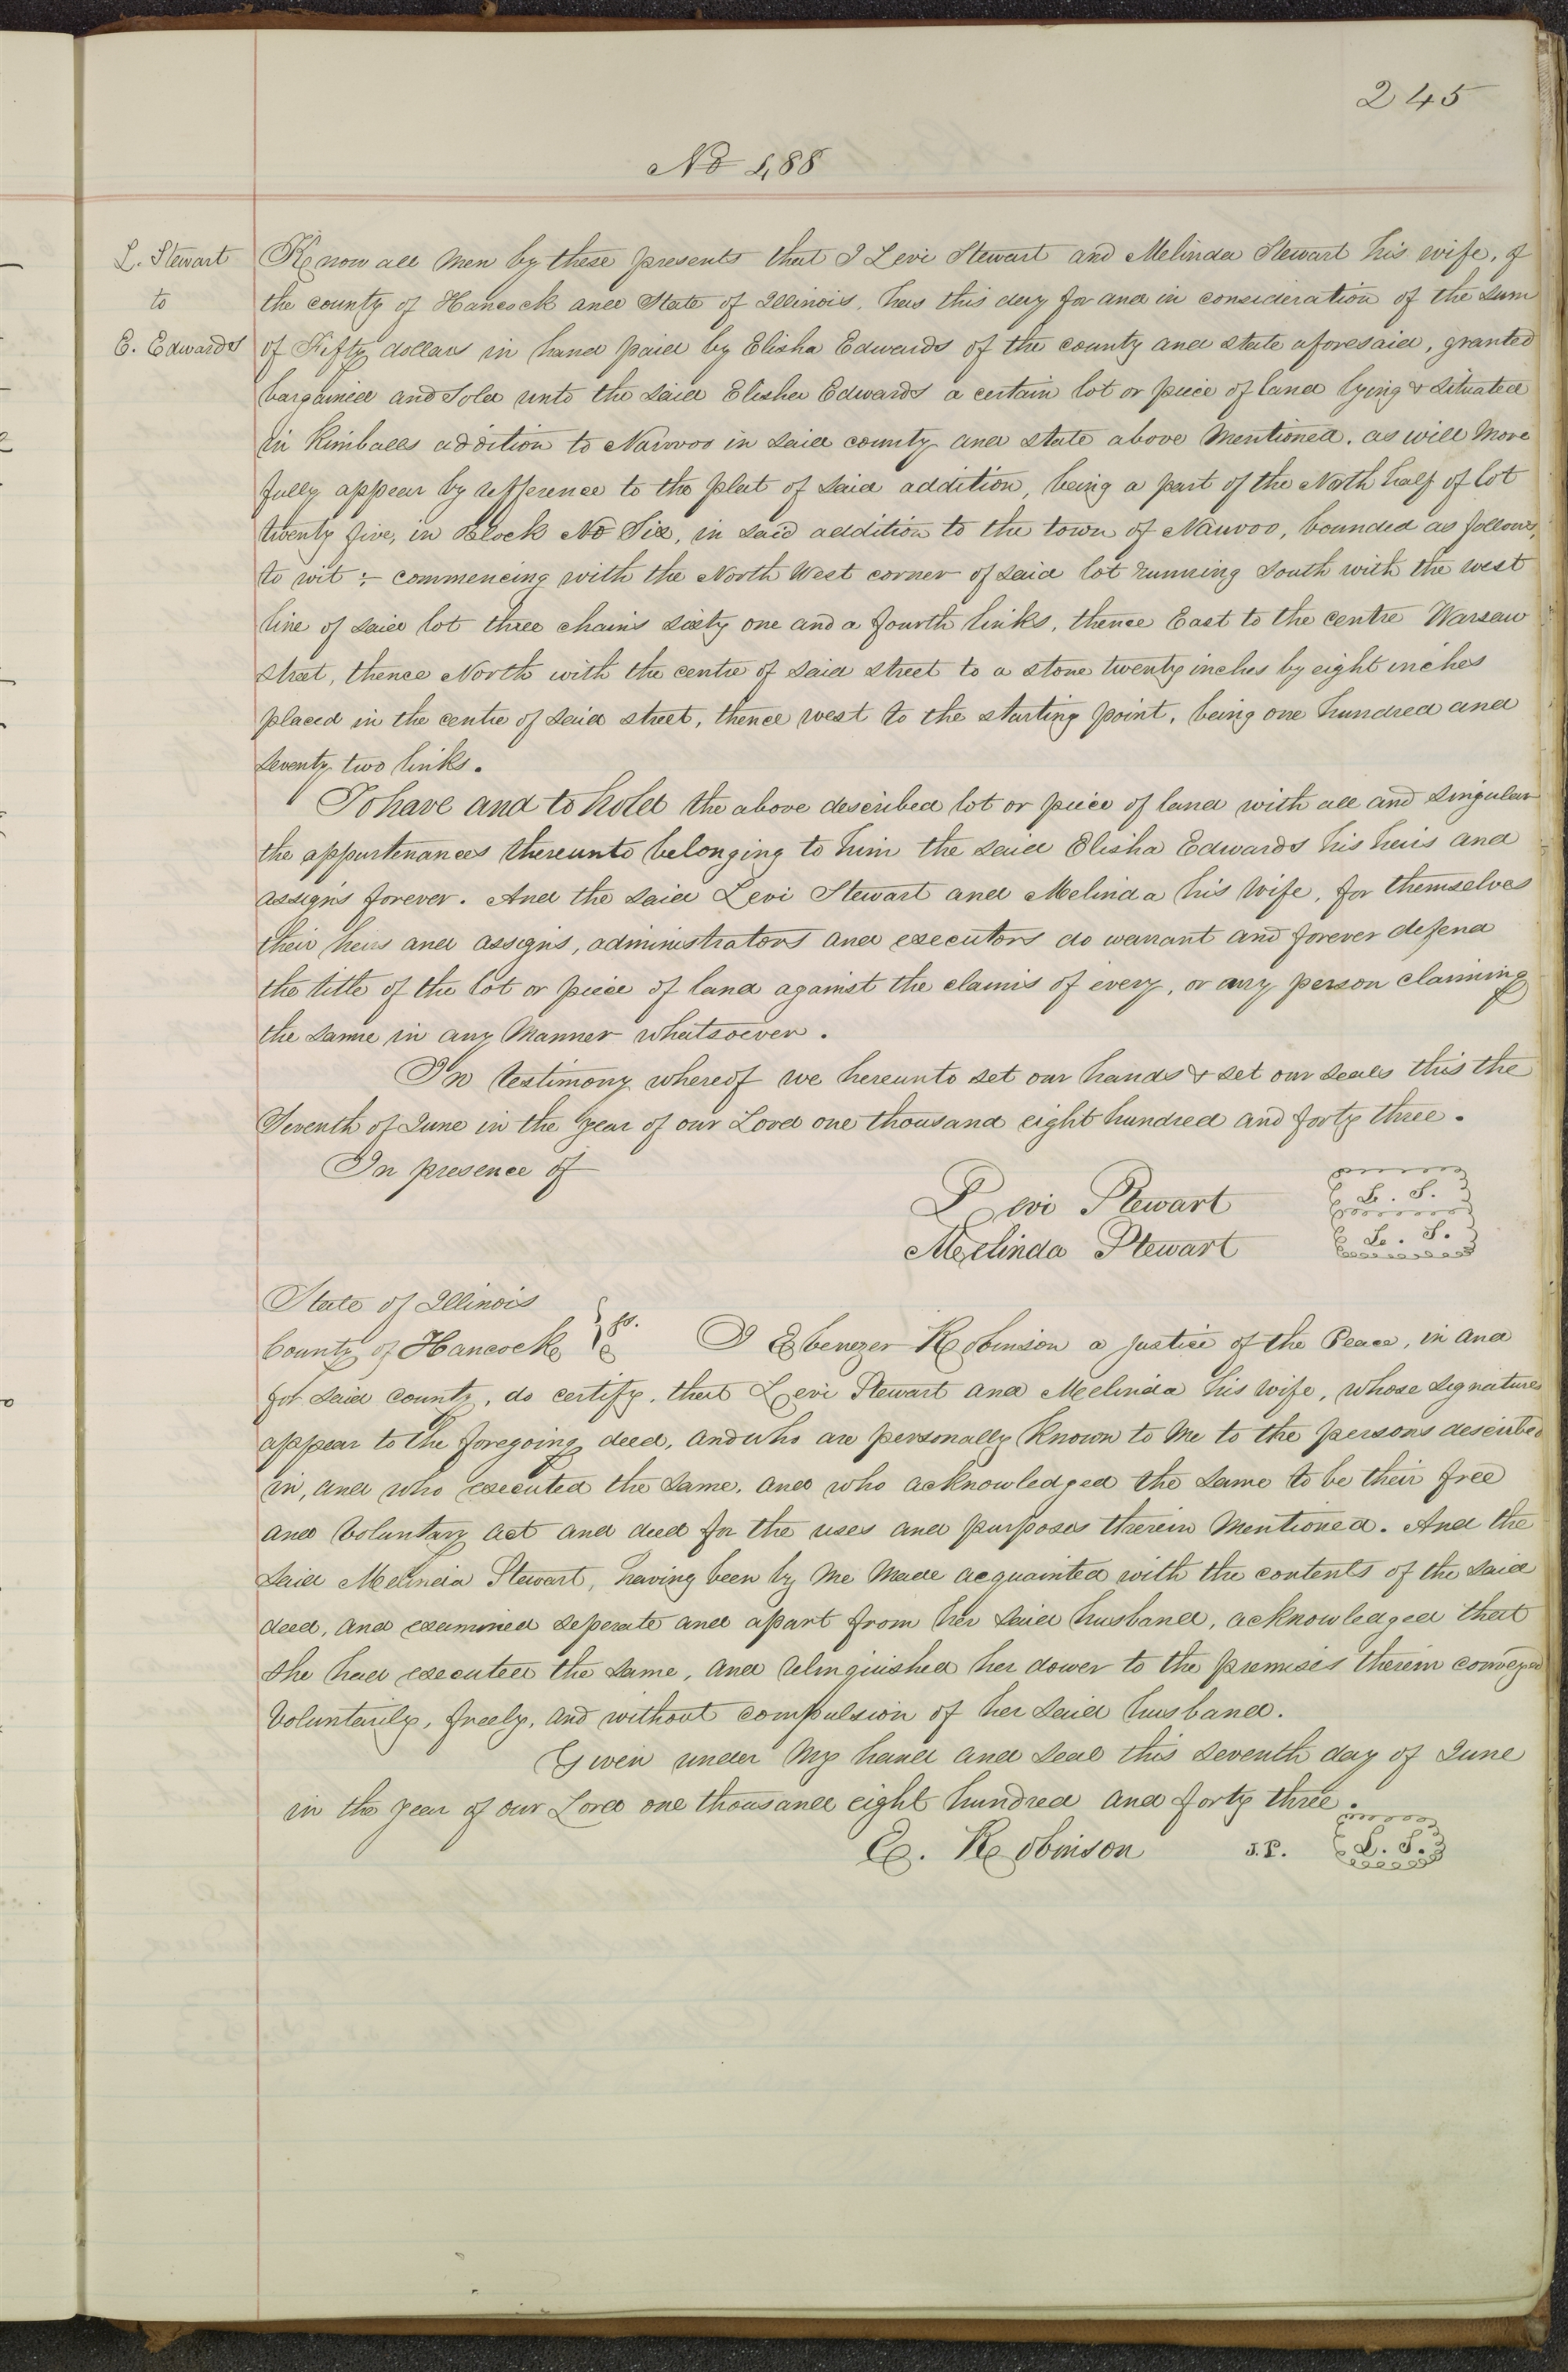 245
No 488
L. Stewart
to
E. Edwards
Know all Men by these presents that I Levi Stewart and Melinda Stewart his wife, of
the county of Hancock and State of Illinois, has this day for and in consideration of the Sum
of Fifty dollars in hand paid by Elisha Edwards of the county and state aforesaid, granted
bargained and Sold unto the said Elisha Edwards a certain lot or piece of land lying & situated
in Kimballs addition to Nauvoo in said county and state above Mentioned. as will More
fully appear by refference to the plat of said addition, being a part of the North half of lot
twenty five, in Block No Six, in said addition to the town of Nauvoo, bounded as follows,
to wit :- commencing with the North West corner of said lot running South with the west
line of said lot three chains sixty one and a fourth links, thence East to the centre Warsaw
street, thence North with the centre of said street to a stone twenty inches by eight inches
placed in the centre of said street, thence west to the starting point, being one hundred and
seventy two links.
To have and to hold the above described lot or piece of land with all and singular
the appurtenances thereunto belonging to him the said Elisha Edwards his heirs and
assigns forever. And the said Levi Stewart and Melinda his wife, for themselves
their heirs and assigns, administrators and executors do warrant and forever defend
the title of the lot or piece of land against the claims of every, or any person claiming
the same in any Manner whatsoever.
In testimony whereof we hereunto set our hands & set our seals this the
Seventh of June in the year of our Lord one thousand eight hundred and forty three.
In presence of
Levi Stewart L. S.
Melinda Stewart L. S.
State of Illinois
County of Hancock } ss. I Ebenezer Robinson a justice of the Peace, in and
for said county, do certify, that Levi Stewart and Melinda his wife, whose signatures
appear to the foregoing deed, and who are personally known to me to the persons described
in, and who executed the same, and who acknowledged the same to be their free
and voluntary act and deed for the uses and purposes therein Mentioned. And the
said Melinda Stewart, having been by me Made acquainted with the contents of the said
deed, and examined seperate and apart from her said husband, acknowledged that
she had executed the same, and relinquished her dower to the premises therein conveyed
voluntarily, freely, and without compulsion of her said husband.
Given under My hand and seal this seventh day of June
in the year of our Lord one thousand eight hundred and forty three.
E. Robinson J.P. L. S.